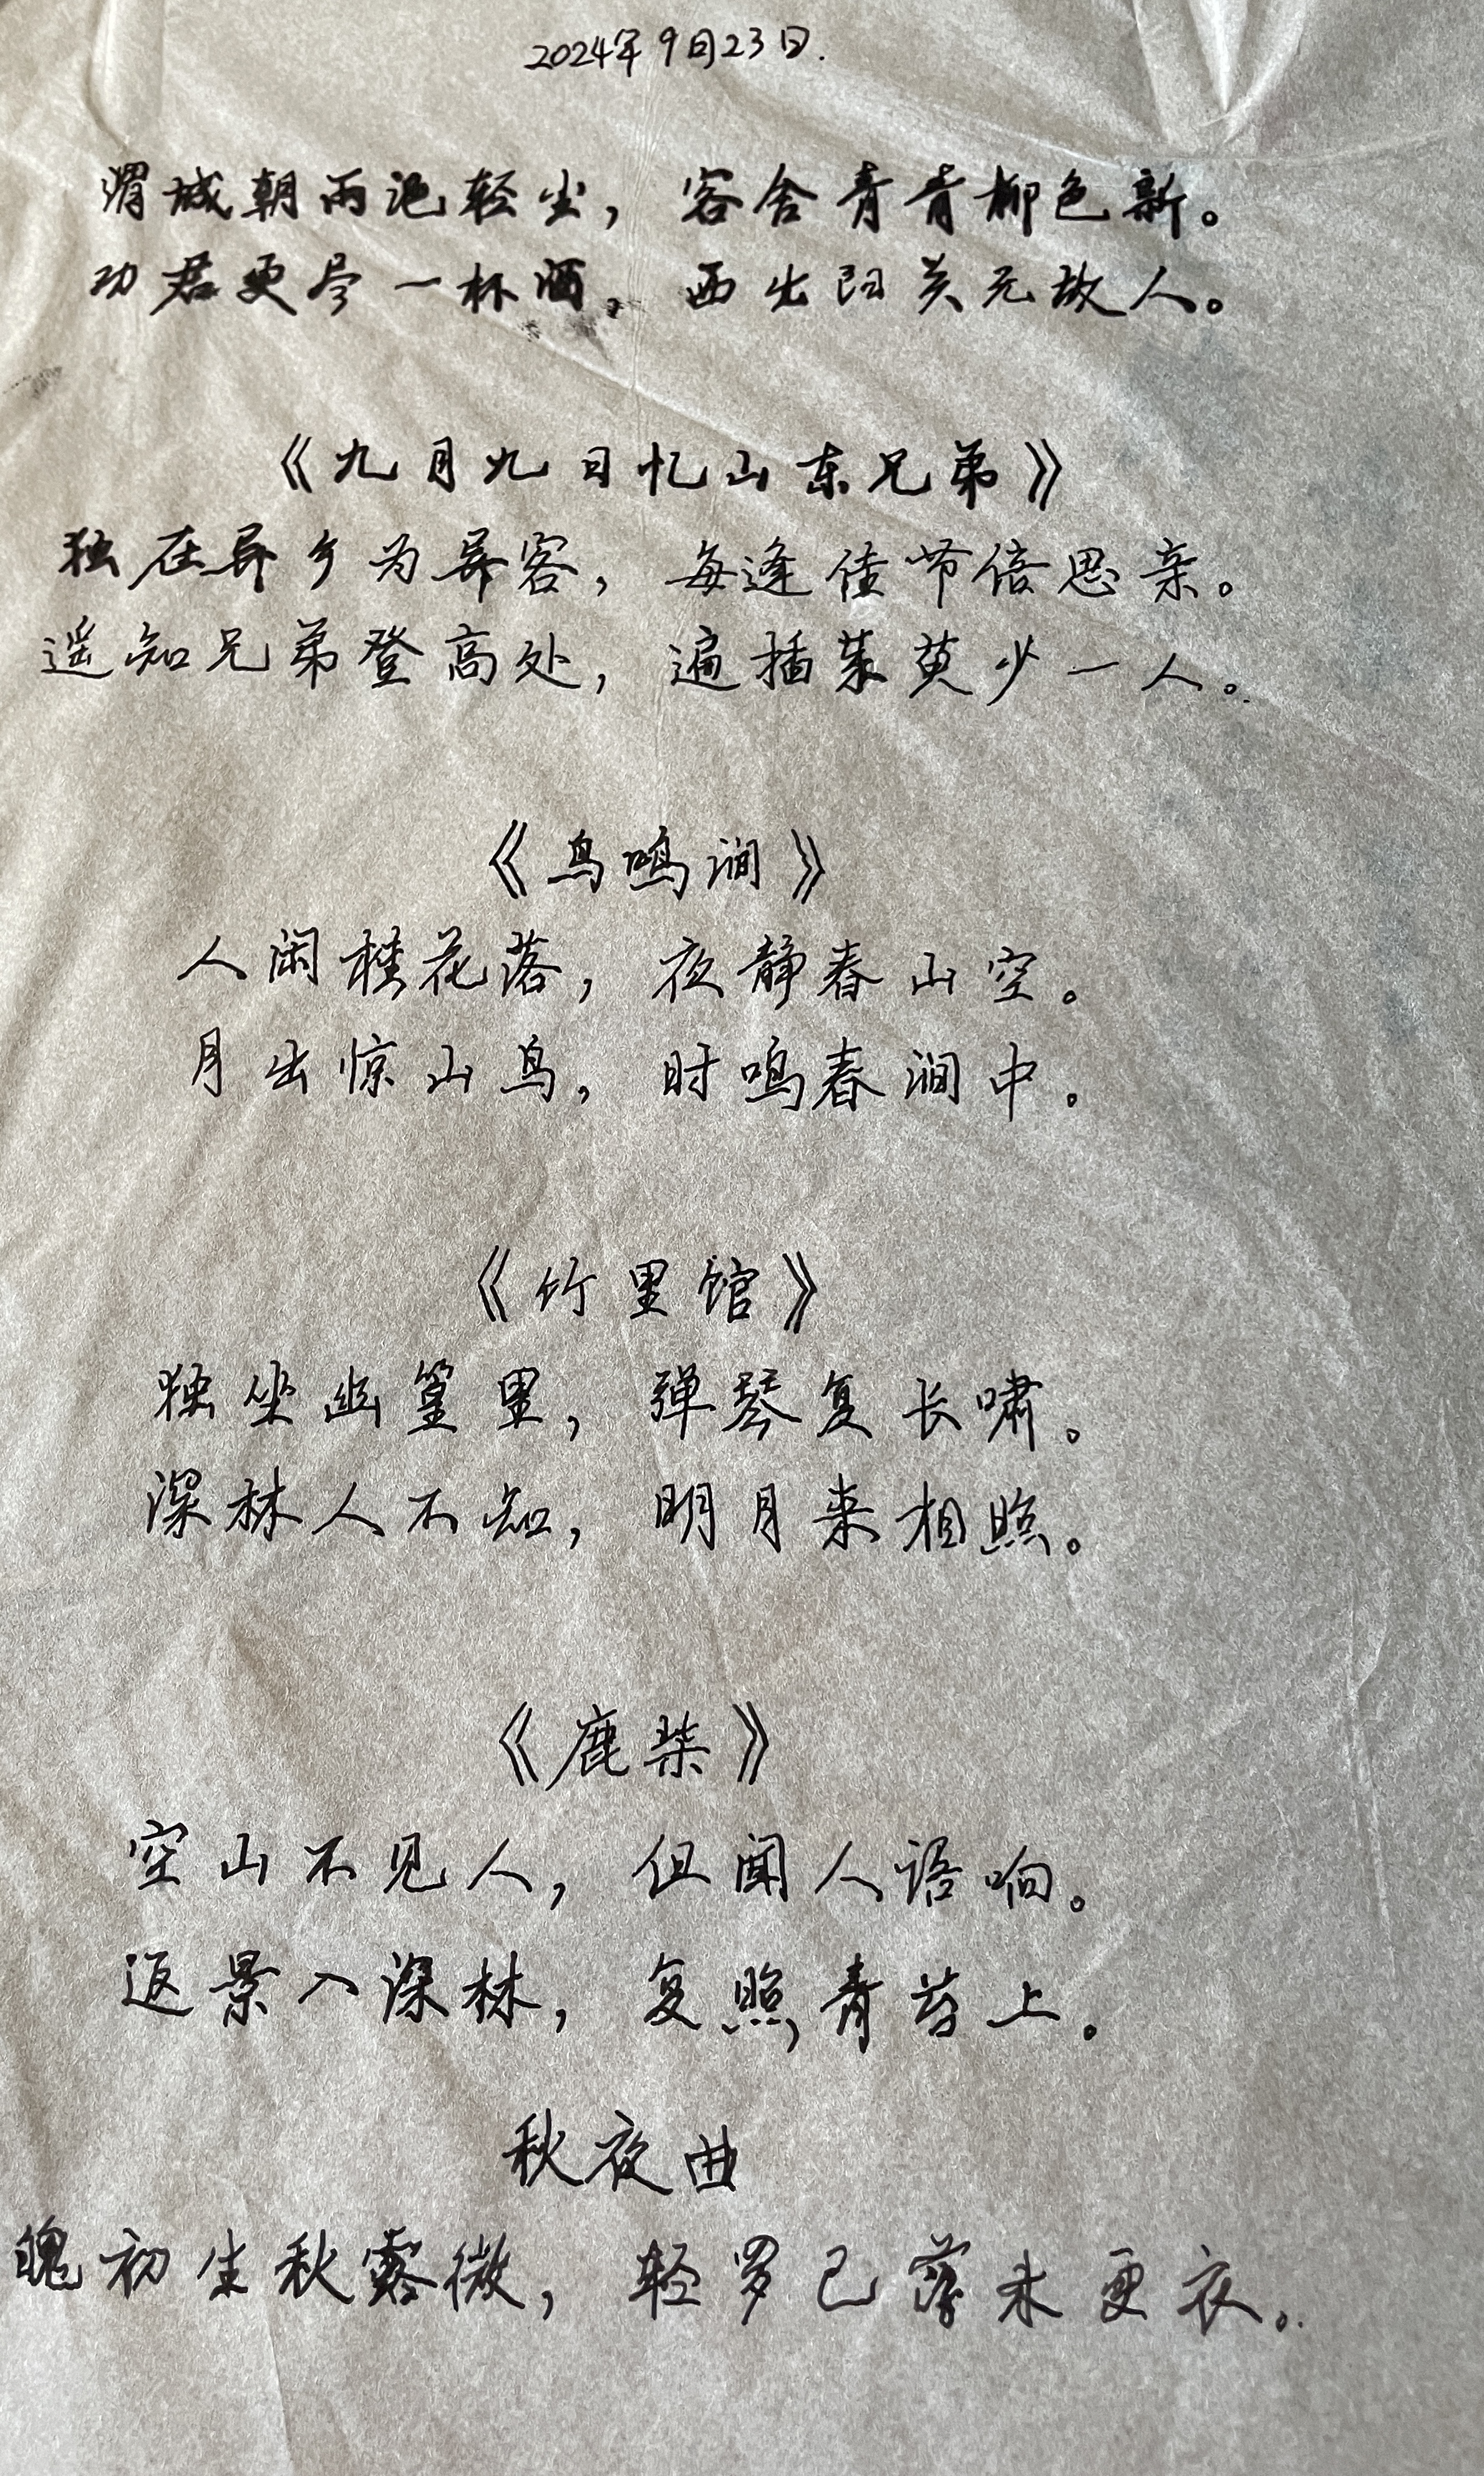 2024年9月23日.
渭城朝雨浥轻尘，客舍青青柳色新。
劝君更尽一杯酒，西出阳关无故人。
《九月九日忆山东兄弟》
独在异乡为异客，每逢佳节倍思亲。
遥知兄弟登高处，遍插茱萸少一人。
《鸟鸣涧》
人闲桂花落，夜静春山空。
月出惊山鸟，时鸣春涧中。
《竹里馆》
独坐幽篁里，弹琴复长啸。
深林人不知，明月来相照。
《鹿柴》
空山不见人，但闻人语响。
返景入深林，复照青苔上。
秋夜曲
魄初生秋露微，轻罗已薄未更衣。